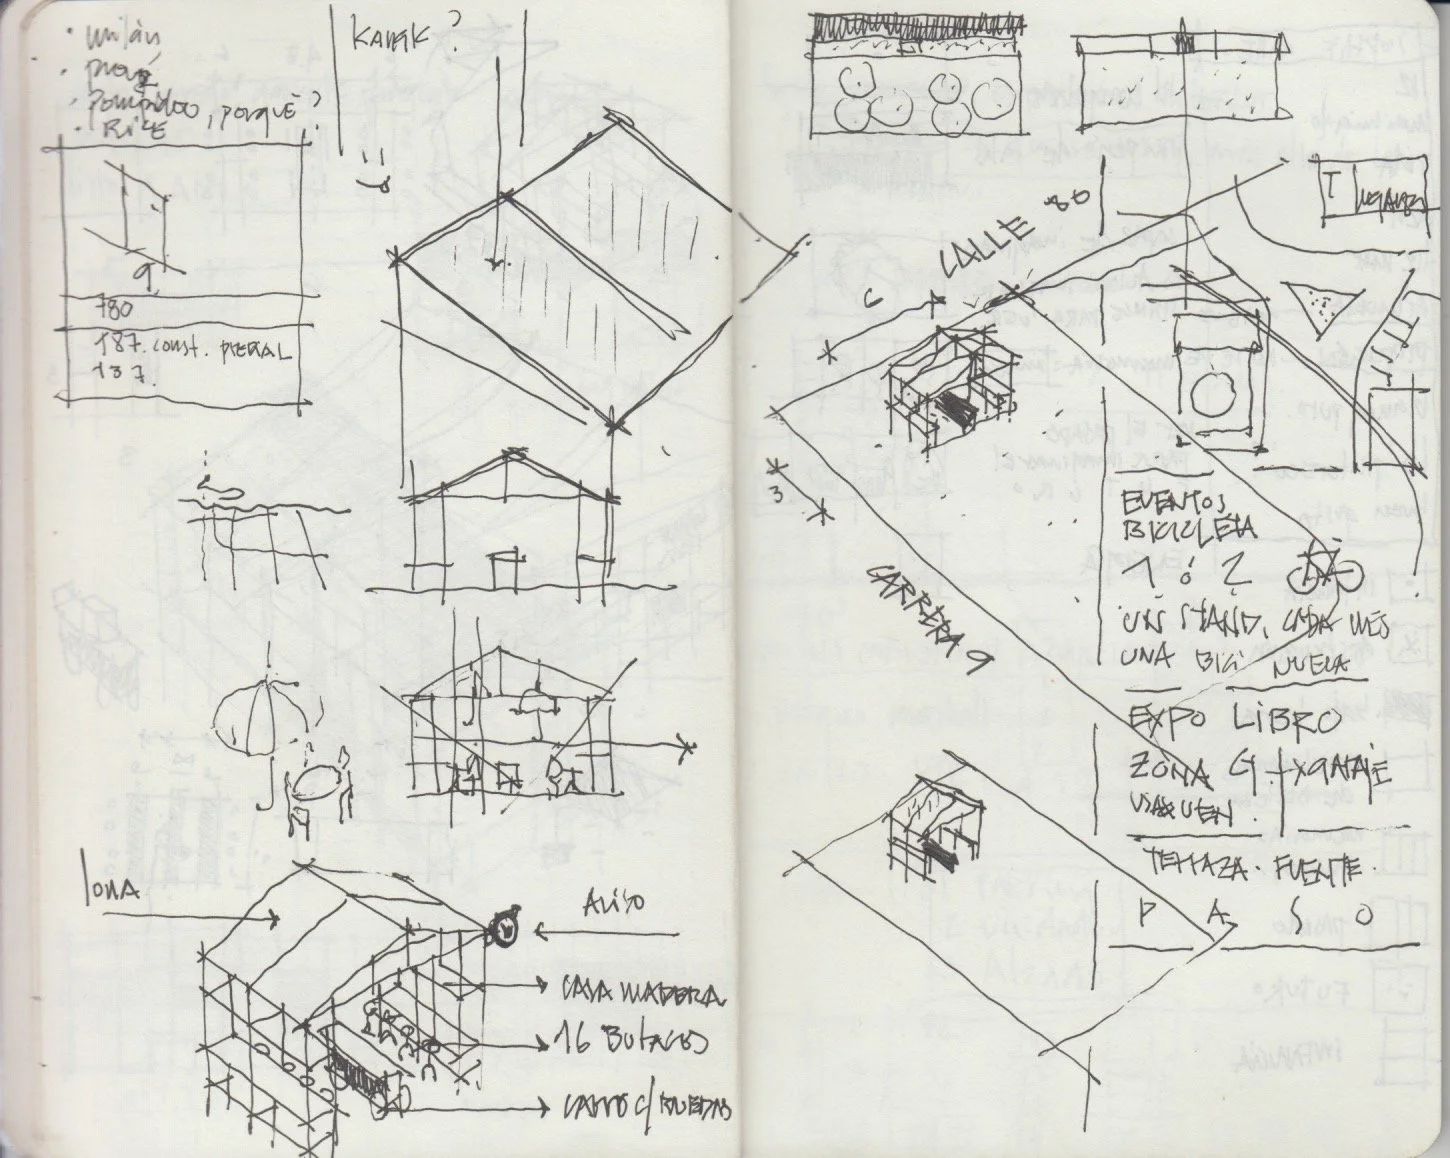 milán
pompidou, porqué?
RICE
9
780
187. const. PIEGAL
137.
KAYAK?
lona
ALISO
CASA MADERA
16 BUTACAS
CARRO C/ RUEDAS
CALLE 80
6
3
CARRERA 9
T
EVENTOS
BICICLETA
1 ó 2
UN STAND, CADA MES
UNA BICI NUEVA
EXPO LIBRO
ZONA
TERRAZA. FUENTE.
P A S O